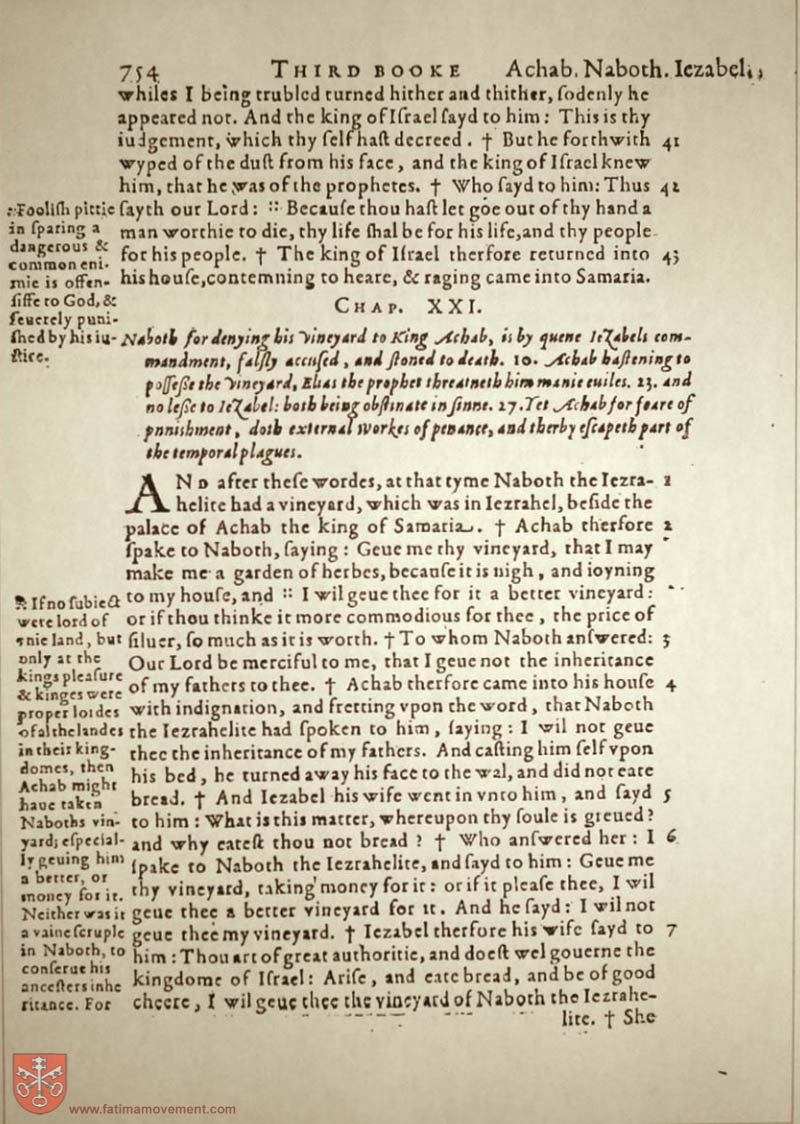 754 THIRD BOOKE Achab. Naboth. Iezabel.
whiles I being trubled turned hither and thither, ſodenly he
appeared not. And the king of Iſrael ſayd to him: This is thy
iudgement, which thy ſelf haſt decreed. † But he forthwith 41
wyped of the duſt from his face, and the king of Iſrael knew
him, that he was of the prophetes. † Who ſayd to him: Thus 42
ſayth our Lord: :: Becauſe thou haſt let goe out of thy hand a
man worthie to die, thy life ſhal be for his life, and thy people
for his people. † The king of Iſrael therfore returned into 43
his houſe, contemning to heare, & raging came into Samaria.
:: Fooliſh pittie
in ſparing a
dangerous &
common eni-
mie is offen-
ſiffe to God, &
ſeuerely puni-
ſhed by his iu-
ſtice.
CHAP. XXI.
Naboth for denying his vineyard to King Achab, is by quene Iezabels com-
mandment, falſly accuſed, and ſtoned to death. 10. Achab haſtening to
poſſeſſe the vineyard, Elias the prophet threatneth him manie euiles. 23. and
no leſſe to Iezabel: both being obſtinate in ſinne. 27. Yet Achab for feare of
punishment, doth external workes of penance, and therby eſcapeth part of
the temporal plagues.
AND after theſe wordes, at that tyme Naboth the Iezra- 1
helite had a vineyard, which was in Iezrahel, beſide the
palace of Achab the king of Samaria. † Achab therfore 2
ſpake to Naboth, ſaying: Geue me thy vineyard, that I may
make me a garden of herbes, becauſe it is nigh, and ioyning
to my houſe, and :: I wil geue thee for it a better vineyard:
or if thou thinke it more commodious for thee, the price of
ſiluer, ſo much as it is worth. † To whom Naboth anſwered: 3
Our Lord be merciful to me, that I geue not the inheritance
of my fathers to thee. † Achab therfore came into his houſe 4
with indignation, and fretting vpon the word, that Naboth
the Iezrahelite had ſpoken to him, ſaying: I wil not geue
thee the inheritance of my fathers. And caſting him ſelf vpon
his bed, he turned away his face to the wal, and did not eate
bread. † And Iezabel his wife went in vnto him, and ſayd 5
to him: What is this matter, whereupon thy ſoule is greued?
and why eateſt thou not bread? † Who anſwered her: I 6
ſpake to Naboth the Iezrahelite, and ſayd to him: Geue me
thy vineyard, taking money for it: or if it pleaſe thee, I wil
geue thee a better vineyard for it. And he ſayd: I wil not
geue thee my vineyard. † Iezabel therfore his wife ſayd to 7
him: Thou art of great authoritie, and doeſt wel gouerne the
kingdome of Iſrael: Ariſe, and eate bread, and be of good
cheere, I wil geue thee the vineyard of Naboth the Iezrahe-
lite. † She
:: If no ſubiect
were lord of
anie land, but
only at the
kings pleaſure
& kinges were
proper lordes
of al the landes
in their king-
domes, then
Achab might
haue taken
Naboths vin-
yard; eſpecial-
ly geuing him
a better, or
money for it.
Neither was it
a vaine ſcruple
in Naboth, to
conſerue his
anceſters inhe
ritance. For
www.fatimamovement.com